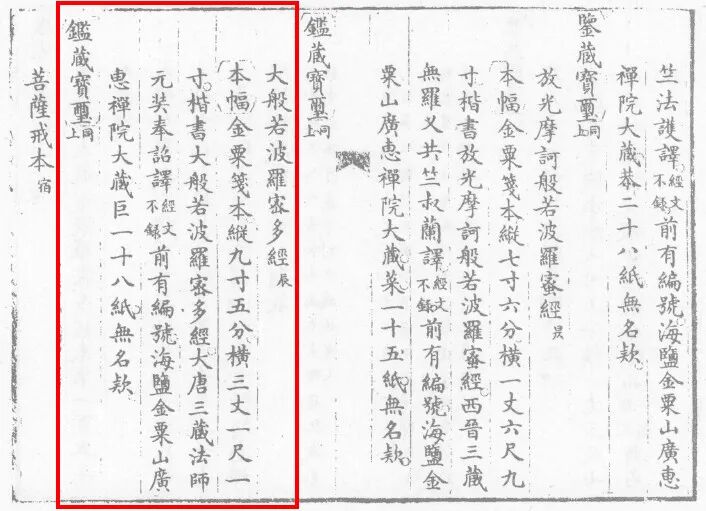 竺法護譯經文不錄前有編號海鹽金粟山廣惠
禪院大藏恭二十八紙無名欵
鑒藏寶璽同上
放光摩訶般若波羅蜜經昃
本幅金粟箋本縱七寸六分橫一丈六尺九
寸楷書放光摩訶般若波羅蜜經西晉三藏
無羅乂共竺叔蘭譯經文不錄前有編號海鹽金
粟山廣惠禪院大藏菜一十五紙無名欵
鑑藏寶璽同上
大般若波羅密多經辰
本幅金粟箋本縱九寸五分橫三丈一尺一
寸楷書大般若波羅密多經大唐三藏法師
元奘奉詔譯經文不錄前有編號海鹽金粟山廣
惠禪院大藏巨一十八紙無名欵
鑑藏寶璽同上
菩薩戒本宿